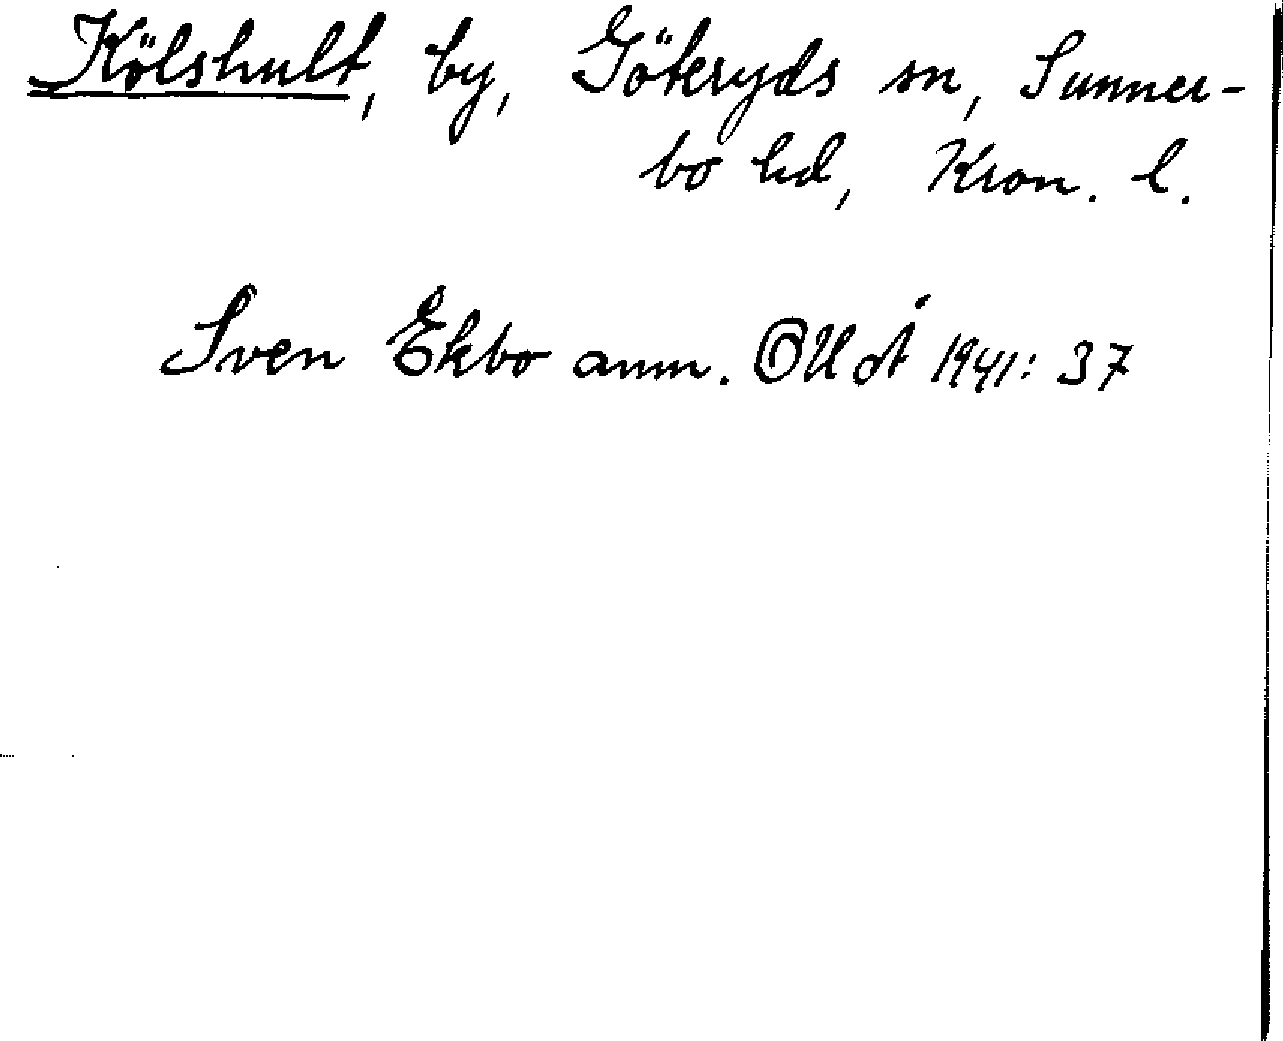 Kölshult, by, Göteryds sn, Sunner-
bo hd, Kron. l.
Sven Ekbo anm. OUÅ 1941: 37